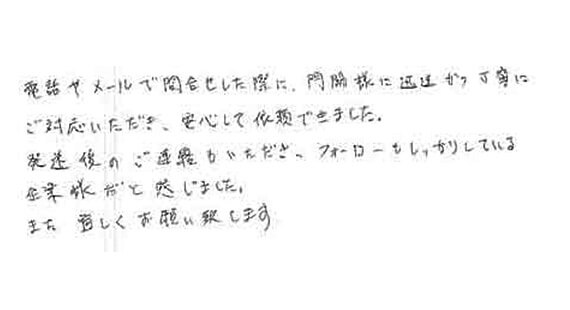 電話やメールで問合せした際に、門開様に迅速かつ丁寧に
ご対応いただき、安心して依頼できました。
発送後のご連絡もいただき、フォローもしっかりしている
企業様だと感じました。
また宜しくお願い致します